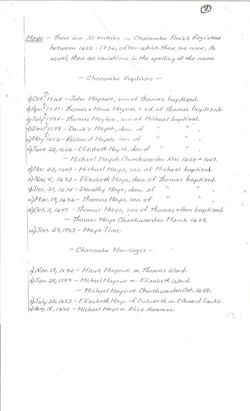 Mayo - There are 35 entries in Charcombe Parish Registers
between 1563 - 1730, after which there are none, As
usual, there are variations in the spelling of the name.
- Charcombe Baptisms -
1) Oct. 1563 - John Maywe, son of Thomas, baptized.
Thomas & Marie Mayhis, s + d of Thomas baptized.
1592 - Thomas Mayhoe, son of Michael baptized.
1599 - Davis Mayoh, dau. of " " "
1603 - Richard Mayoh, son of " " "
June 22, 1606 - Elizabeth Mayh, dau. of " " "
- Michael Mayoh Churchwarden Nov. 1607 + 1609.
Mar. 20, 1607 - Michael Mayo, son of Michael, baptized.
Nov. 4, 1632 - Elizabeth Mayo, dau. of Thomas, baptized.
Dec. 21, 1634 - Dorothy Mayo, dau. of " "
Mar. 19, 1636 - Thomas Mayo, son of " "
Oct. 2, 1645 - Thomas Mayo, son of Thomas + Ann baptized.
- Thomas Mayo Churchwarden March 1649.
Jan. 29, 1713 - Mayo Tims.
- Charcombe Marriages -
1) Nov. 13, 1592 - Marie Maywe m Thomas Ward.
Jan. 28, 1599 - Michael Maywe m Elizabeth Ward.
- Michael Maywe Churchwarden Oct. 1608.
July 22, 1633 - Elizabeth Mayo of Culworth m Edward
1642 - Michael Mayo m. Alice Hammon.